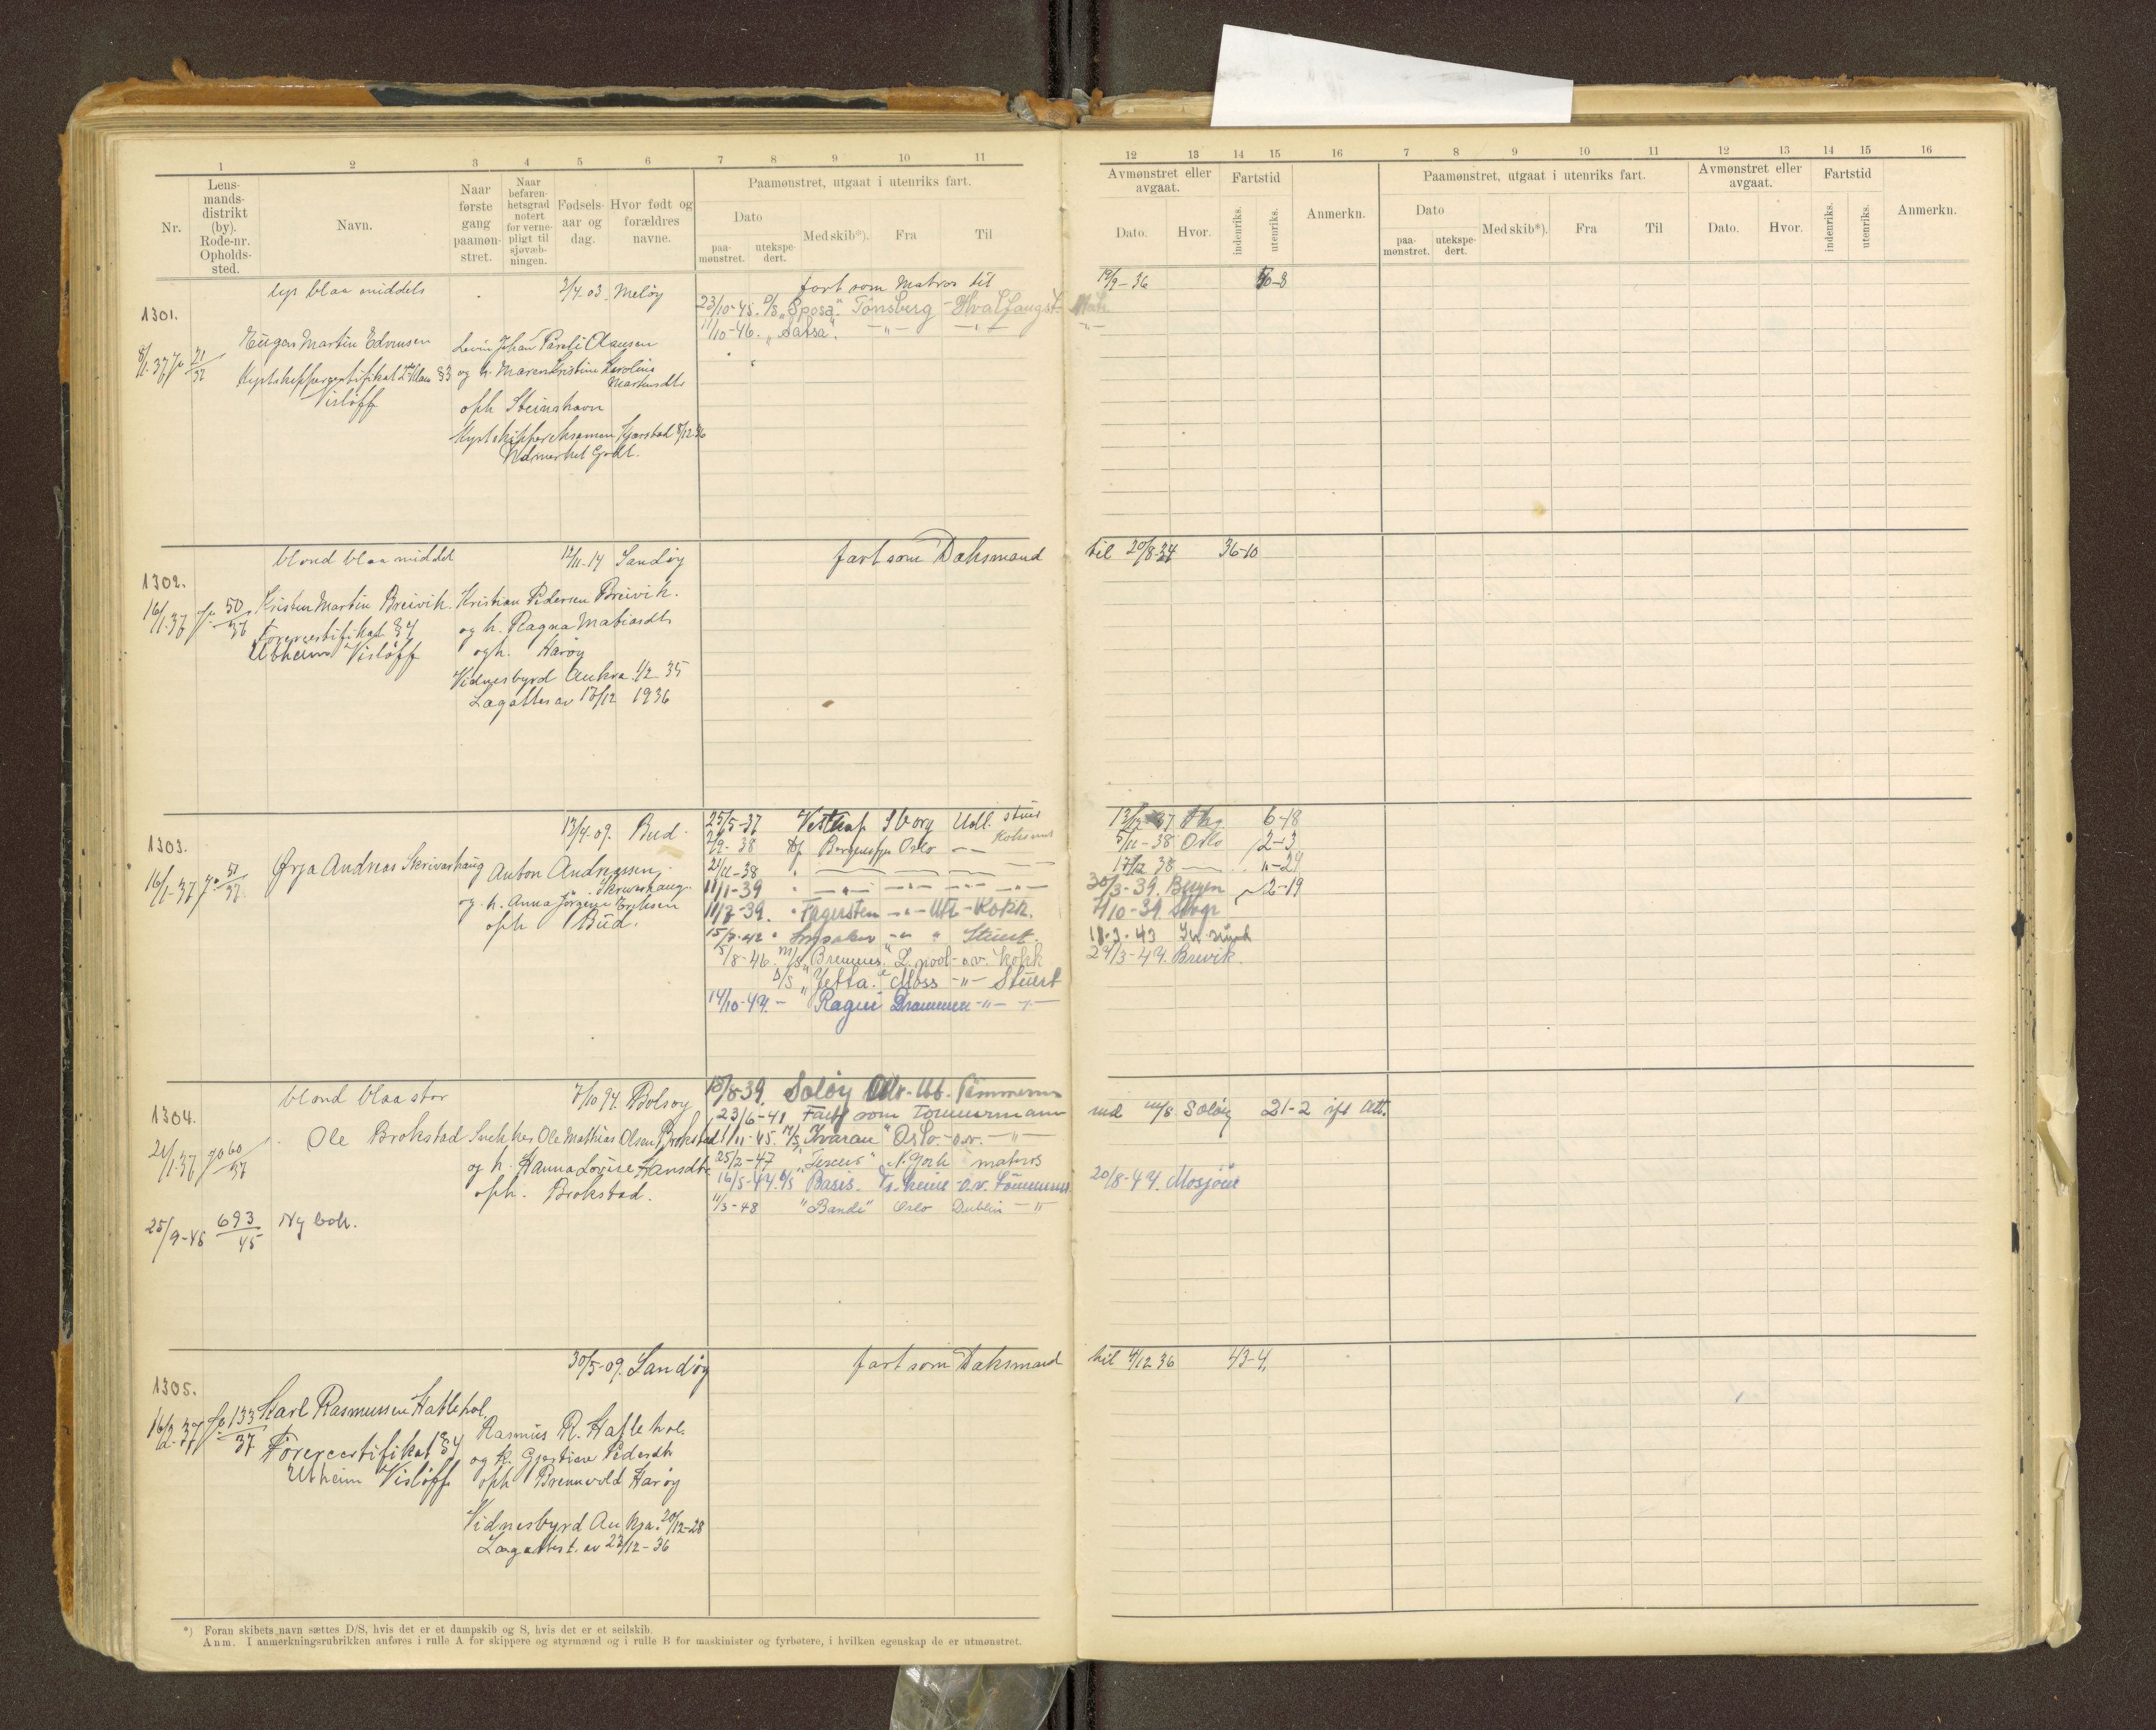 1 2 3 4 5 6 7 8 9 10 11
12 13 14 15 16 7 8 9 10 11 12 13 14 15 16
Nr.
Lens-
mands-
distrikt
(by).
Rode-nr.
Opholds-
sted.
Navn.
Naar
første
gang
paamøn-
stret.
Naar
befaren-
hetsgrad
notert
for verne-
pligt til
sjøvæb-
ningen.
Fødsels-
aar og
dag.
Hvor født og
forældres
navne.
Paamønstret, utgaat i utenriks fart.
Dato
paa-
mønstret.
utekspe-
dert.
Med skib*).
Fra
Til
Avmønstret eller
avgaat.
Dato.
Hvor.
Fartstid
indenriks.
utenriks.
Anmerkn.
Paamønstret, utgaat i utenriks fart.
Dato
paa-
mønstret.
utekspe-
dert.
Med skib*).
Fra
Til
Avmønstret eller
avgaat.
Dato.
Hvor.
Fartstid
indenriks.
utenriks.
Anmerkn.
1301.
lys blaa middels
2/4.03. Meløy
fart som Matros til 12/9-36
23/10-45. D/S „Sposa". Tønsberg - Hvalfangst-
11/10-46. „Satsa". -"- -"- -"-
8/1.37 21/37
Martin Edvinsen
Levin Johan Clausen
Kystskippercertifikat §3
og h. Maren Kristine Karolina
Martinsdtr
Visløff
oph Steinshavn
Kystskippereksamen 8/12 36
Udmerket Godt.
1302.
blond blaa middel
12/11-14 Sandøy
fart som Daksmand til 20/8-34 36-10
16/1-37 50/37
Kristen Martin Breivik.
Kristian Pedersen Breivik.
Førercertifikat §4
og h. Ragna Matiasdtr
Utheim Visløff
oph. Harøy
Vidnesbyrd Aukra 1/2 35
Lægattes av 17/12 1936
1303.
13/4-09. Bud.
25/5-37 Vestkap Sborg Utl. stuer 6-18
2/9-38 Oslo -"- Koksmat 5/11-38 Oslo 2-3
21/11-38 17/12 38 "-24
16/1-37 51/37
Andreas Skrivarhaug
Anton Andreassen
Skrivarhaug
11/1-39 -"- -"- -"- -"- 30/3-39. Bergen 2-19
og h. Anna Jørgine Eriksen
11/7-39. " Fagersten -"- Utl-Kokk. 7/10-39.
oph Bud.
15/7-42 " -"- " Stuert. 11.3.43
5/8-46. M/S „Bremnes." L.pool-o.v. kokk 29/3-49. Brevik.
D/S „Jetta." Moss -"- Stuert
14/10-49. - "Ragni Drammen -"- -"-
1304.
blond blaa stor
7/10 94. Bolsøy
18/8-39. Soløy Utl. Tømmerm
23/6-41 Fart som Tømmermann med m/s Soløy 21-2 ifl Att.
21/1.37 60/37
Ole Brokstad
Snekker Ole Mathias Olsen Brokstad
1/11-45. M/S „Ivaran" Oslo.-o.v. -"-
og h. Hanna Lovise Hansdtr
25/2-47 N.York matros
oph. Brokstad.
16/5-47. D/S Basis. -o.v. Tømmerm 20/8-47. Mosjøen
11/3-48 "Bandi" Oslo Dublin -"
25/9-45 693/45 Ny bok.
1305.
30/5-09. Sandøy
fart som Daksmand til 4/12 36 43-4.
16/2-37 133/37
Karl Rasmussen Hatlehol.
Rasmus R. Hatlehol.
Førercertifikat §4
og h. Gjertine Pedersdtr
Utheim Visløff
oph Brennvold Harøy
Vidnesbyrd Aukra. 20/12-28
Lægattest. av 23/12-36
*) Foran skibets navn sættes D/S, hvis det er et dampskib og S, hvis det er et seilskib.
Anm. I anmerkningsrubrikken anføres i rulle A for skippere og styrmænd og i rulle B for maskinister og fyrbøtere, i hvilken egenskap de er utmønstret.